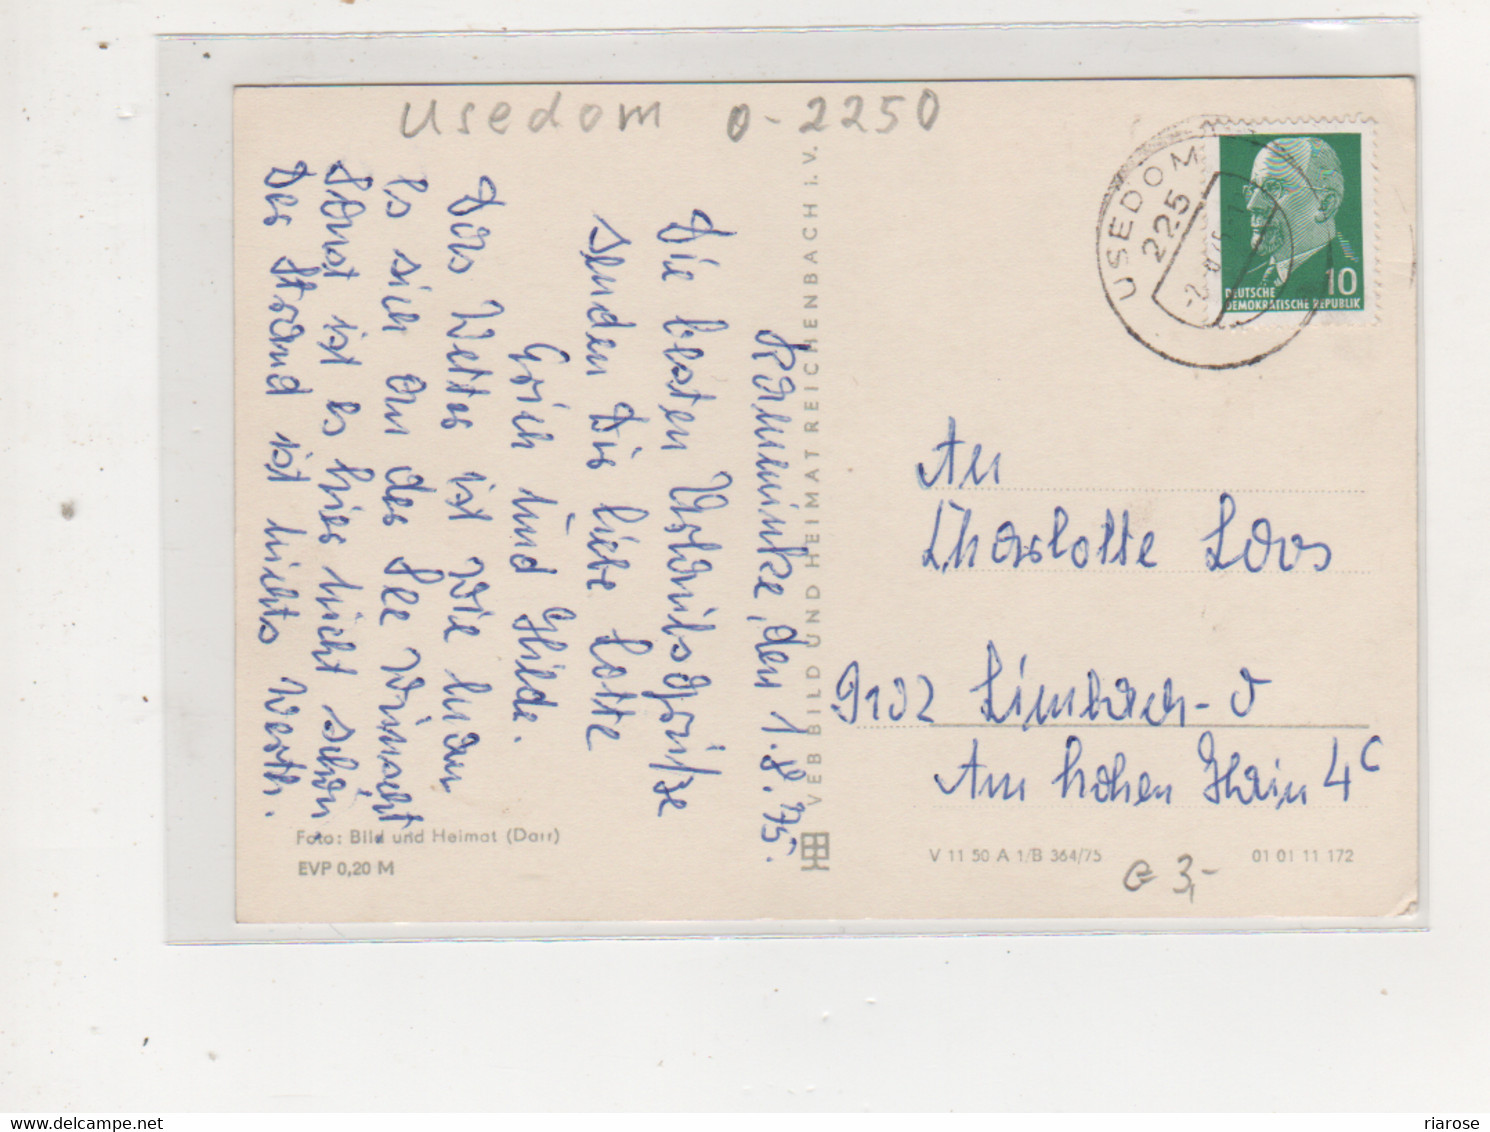 Usedom 0-2250
USEDOM
225
10
DEUTSCHE
DEMOKRATISCHE REPUBLIK
Kamminke, den 1.8.75.
Die besten Urlaubsgrüße
senden Dir liebe Lotte
Erich und Hilde.
Das Wetter ist wie man
es sich an der See wünscht,
sonst ist es hier nicht schön
Der Strand ist nichts werth.
VEB BILD UND HEIMAT REICHENBACH i. V.
An
Charlotte Loos
9102 Limbach-O
Am hohen Hain 4c
Foto: Bild und Heimat (Darr)
EVP 0,20 M
V 11 50 A 1/B 364/75
01 01 11 172
3,-
riarose